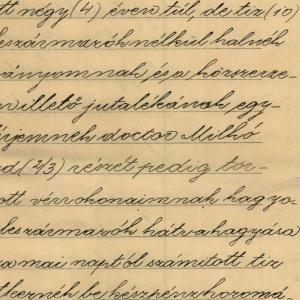 tt négy (4) éven túl, de tiz (10)
leszármazók nélkül halnék
ányomnak és a közszerze-
n illető jutalékának egy-
férjemnek doctor Milkó
ad (2/3) részét pedig tör-
ott vérrokonaimnak hagyo-
leszármazók hátrahagyása
a mai naptól számított tiz
tkeznék be készpénz hozomá